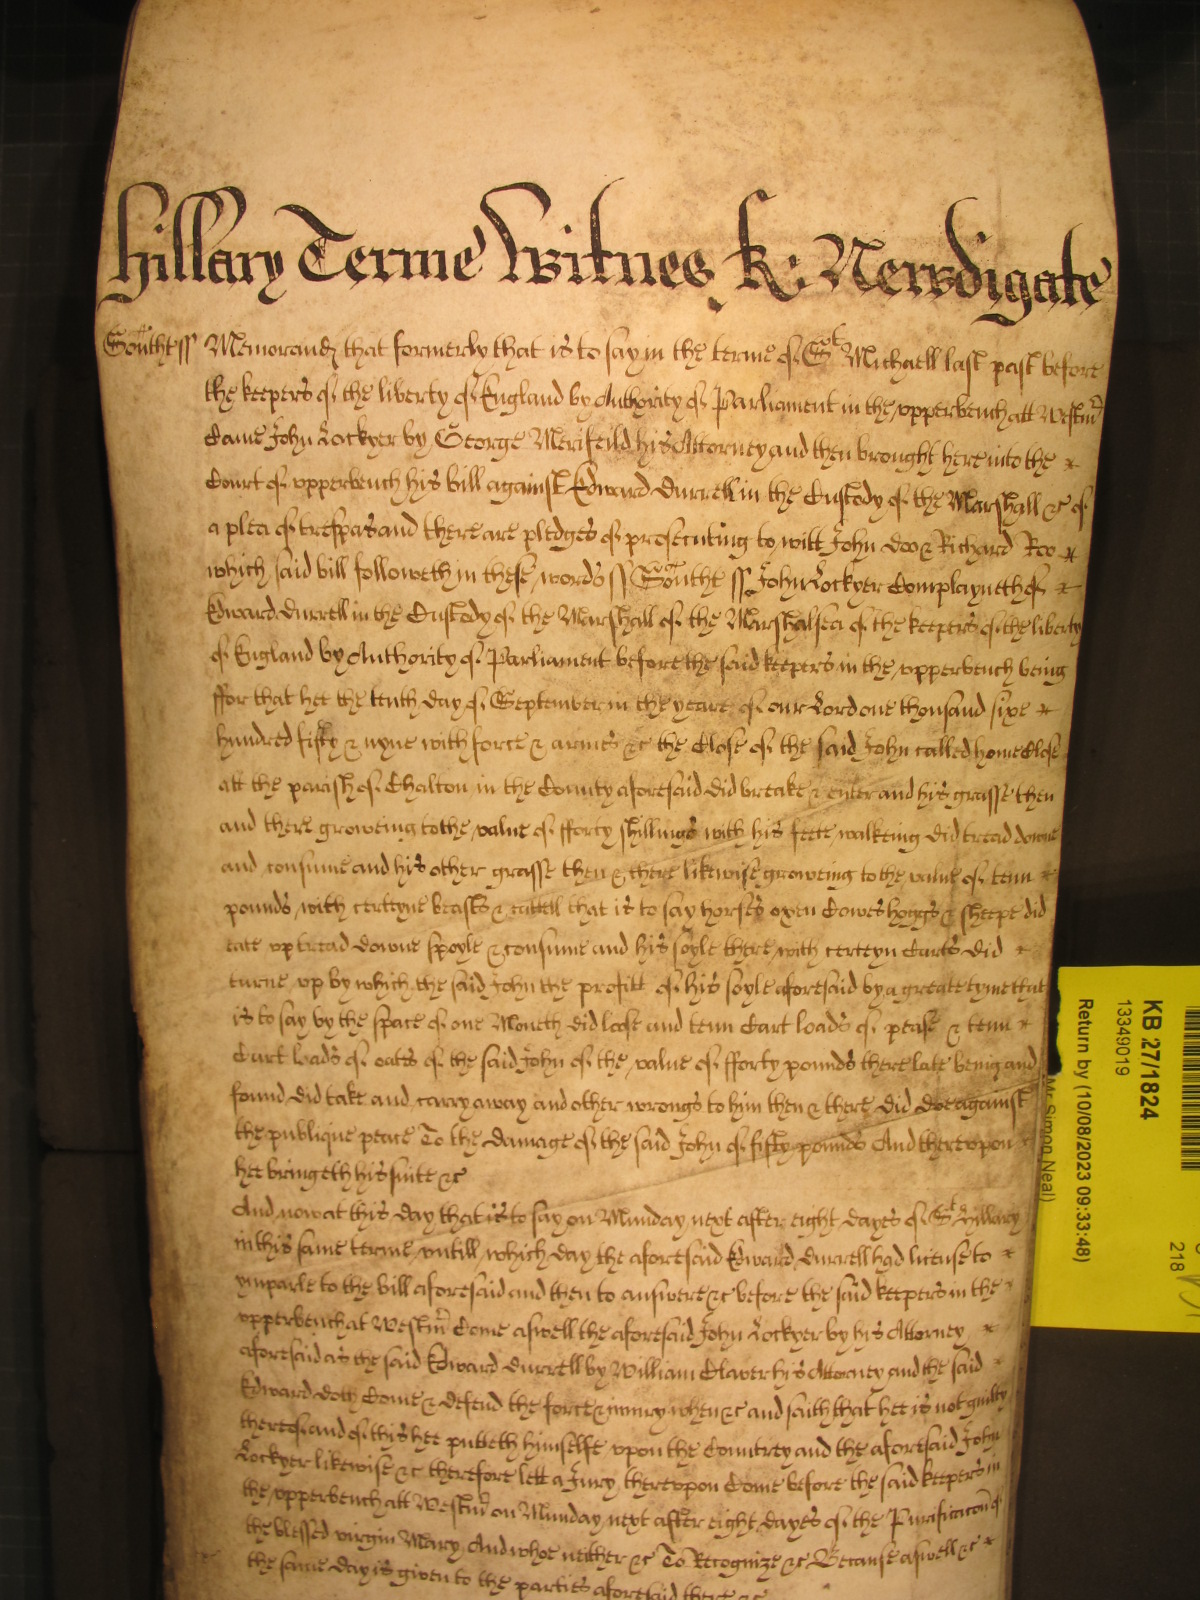 Hillary Terme Witnes R: Newdigate
Southt ss Memorand that formerly that is to say in the terme of St Michaell last past before
the keepers of the liberty of England by Authority of Parliament in the upperbench att Westmr
Came John Lockyer by George Merifeild his Attorney and then brought here into the
Court of upperbench his bill against Edward Durrell in the Custody of the Marshall &c of
a plea of trespas and there are pledges of prosecuting to witt John Doo & Richard Roo
which said bill followeth in these words ss Southt ss John Lockyer Complayneth of
Edward Durrell in the Custody of the Marshall of the Marshalsea of the keepers of the liberty
of England by Authority of Parliament before the said keepers in the upperbench being
ffor that hee the tenth day of September in the yeare of our Lord one thousand sixe
hundred fifty & nyne with force & armes &c the Close of the said John called home Close
att the parish of Chalton in the County aforesaid did breake & enter and his grasse then
and there groweing to the value of fforty shillings with his feete walkeing did tread downe
and consume and his other grasse then & there likewise groweing to the value of tenn
pounds with certeyne beasts & cattell that is to say horses oxen Cowes hoggs & sheepe did
eate up tread downe spoyle & consume and his soyle there with certeyn Carts did
turne up by which the said John the profitt of his soyle aforesaid by a greate tyme that
is to say by the space of one Moneth did loose and tenn Cart loads of pease & tenn
Cart loads of oats of the said John of the value of fforty pounds there late being and
found did take and carry away and other wrongs to him then & there did doe against
the publique peace To the damage of the said John of fifty pounds And thereupon
hee bringeth his suite &c
And now at this day that is to say on Munday next after eight dayes of St Hillary
in this same terme untill which day the aforesaid Edward Durrell had license to
ymparle to the bill aforesaid and then to answere &c before the said keepers in the
upperbench at Westmr Come aswell the aforesaid John Lockyer by his Attorney
aforesaid as the said Edward Durrell by William Claver his Attorney and the said
Edward doth Come & defend the force & iniury when &c and saith that hee is not guilty
thereof and of this hee putteth himselfe upon the Countrey and the aforesaid John
Lockyer likewise &c therefore lett a Jury thereupon Come before the said keepers in
the upperbench att Westmr on Munday next after eight dayes of the Purificacon of
the blessed virgin Mary And whoe neither &c To Recognize &c Because aswell &c
the same day is given to the parties aforesaid there &c
KB 27/1824
13349019
Return by (10/08/2023 09:33:48)
Mr Simon Neal)
218